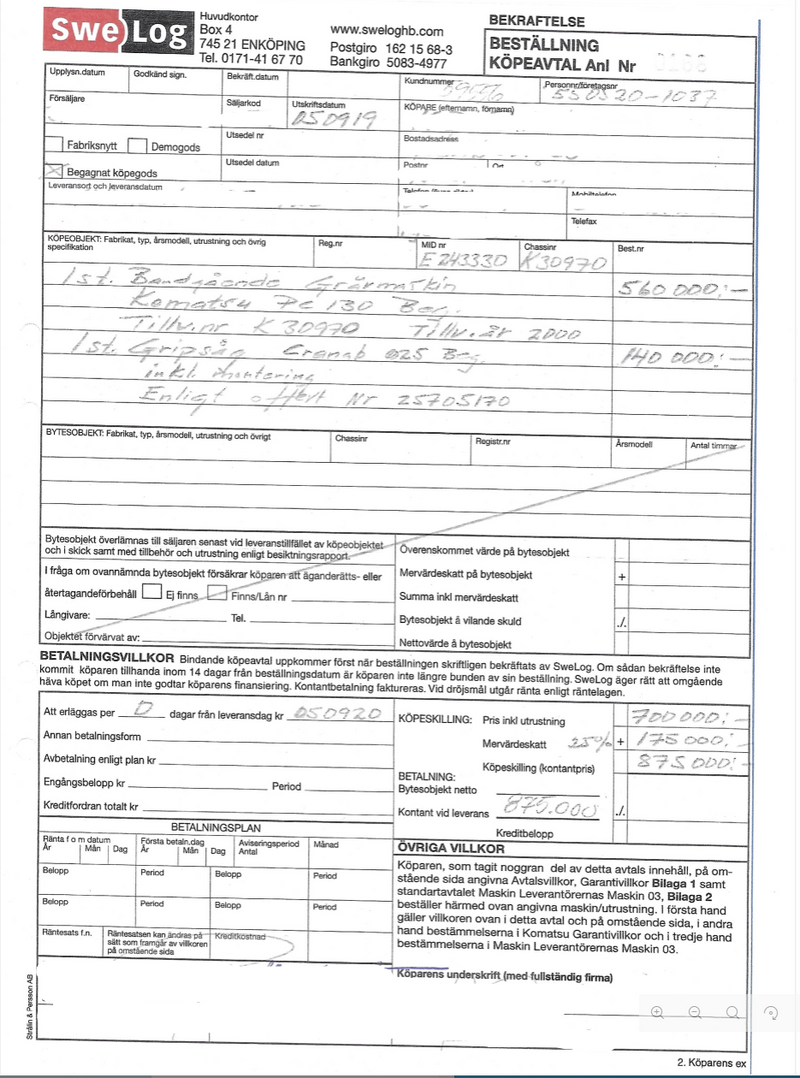 SweLog
Huvudkontor
Box 4
745 21 ENKÖPING
Tel. 0171-41 67 70
www.sweloghb.com
Postgiro 162 15 68-3
Bankgiro 5083-4977
BEKRAFTELSE
BESTÄLLNING
KÖPEAVTAL Anl Nr
Upplysn.datum Godkänd sign. Bekräft.datum Kundnummer Personnr/företagsnr
550520-1037
Försäljare Säljarkod Utskriftsdatum KÖPARE (efternamn, förnamn)
050919
Fabriksnytt Demogods Utsedel nr Bostadsadress
Begagnat köpegods Utsedel datum Postnr Ort
Leveransort och leveransdatum Mobiltelefon
Telefax
KÖPEOBJEKT: Fabrikat, typ, årsmodell, utrustning och övrig specifikation Reg.nr MID nr Chassinr Best.nr
E243330 K30970
1st. Bandgående Grävmaskin 560 000:-
Komatsu PC 130 Beg.
Tillv.nr K 30970 Tillv.år 2000
1st. Gripsåg Cranab 025 Beg. 140 000:-
inkl. montering
Enligt offert Nr 25705170
BYTESOBJEKT: Fabrikat, typ, årsmodell, utrustning och övrigt Chassinr Registr.nr Årsmodell Antal timmar
Bytesobjekt överlämnas till säljaren senast vid leveranstillfället av köpeobjektet
och i skick samt med tillbehör och utrustning enligt besiktningsrapport.
I fråga om ovannämnda bytesobjekt försäkrar köparen att äganderätts- eller
återtagandeförbehåll Ej finns Finns/Lån nr
Långivare: Tel.
Objektet förvärvat av:
Överenskommet värde på bytesobjekt
Mervärdeskatt på bytesobjekt +
Summa inkl mervärdeskatt
Bytesobjekt å vilande skuld ./.
Nettovärde å bytesobjekt
BETALNINGSVILLKOR Bindande köpeavtal uppkommer först när beställningen skriftligen bekräftats av SweLog. Om sådan bekräftelse inte
kommit köparen tillhanda inom 14 dagar från beställningsdatum är köparen inte längre bunden av sin beställning. SweLog äger rätt att omgående
häva köpet om man inte godtar köparens finansiering. Kontantbetalning faktureras. Vid dröjsmål utgår ränta enligt räntelagen.
Att erläggas per 0 dagar från leveransdag kr 050920
Annan betalningsform
Avbetalning enligt plan kr
Engångsbelopp kr Period
Kreditfordran totalt kr
KÖPESKILLING: Pris inkl utrustning 700 000:-
Mervärdeskatt 25% + 175 000:-
Köpeskilling (kontantpris) 875 000:-
BETALNING:
Bytesobjekt netto
Kontant vid leverans 875.000 ./.
Kreditbelopp
BETALNINGSPLAN
Ränta f o m datum Första betaln.dag Aviseringsperiod Månad
År Mån Dag År Mån Dag Antal
Belopp Period Belopp Period
Belopp Period Belopp Period
Räntesats f.n. Räntesatsen kan ändras på Kreditkostnad
sätt som framgår av villkoren
på omstående sida
ÖVRIGA VILLKOR
Köparen, som tagit noggran del av detta avtals innehåll, på om-
stående sida angivna Avtalsvillkor, Garantivillkor Bilaga 1 samt
standartavtalet Maskin Leverantörernas Maskin 03, Bilaga 2
beställer härmed ovan angivna maskin/utrustning. I första hand
gäller villkoren ovan i detta avtal och på omstående sida, i andra
hand bestämmelserna i Komatsu Garantivillkor och i tredje hand
bestämmelserna i Maskin Leverantörernas Maskin 03.
Köparens underskrift (med fullständig firma)
Strålin & Persson AB
2. Köparens ex